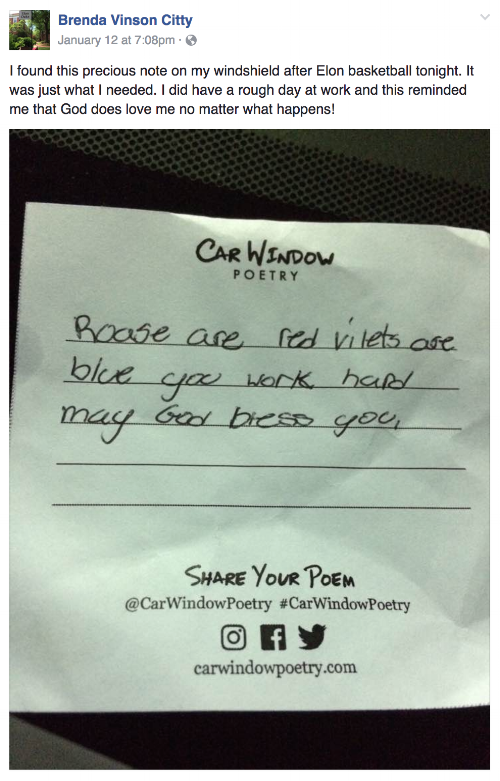 Brenda Vinson Citty
January 12 at 7:08pm ·
I found this precious note on my windshield after Elon basketball tonight. It
was just what I needed. I did have a rough day at work and this reminded
me that God does love me no matter what happens!
CAR WINDOW
POETRY
Roase are red vilets are
blue you work hard
may God bless you,
SHARE YOUR POEM
@CarWindowPoetry #CarWindowPoetry
carwindowpoetry.com